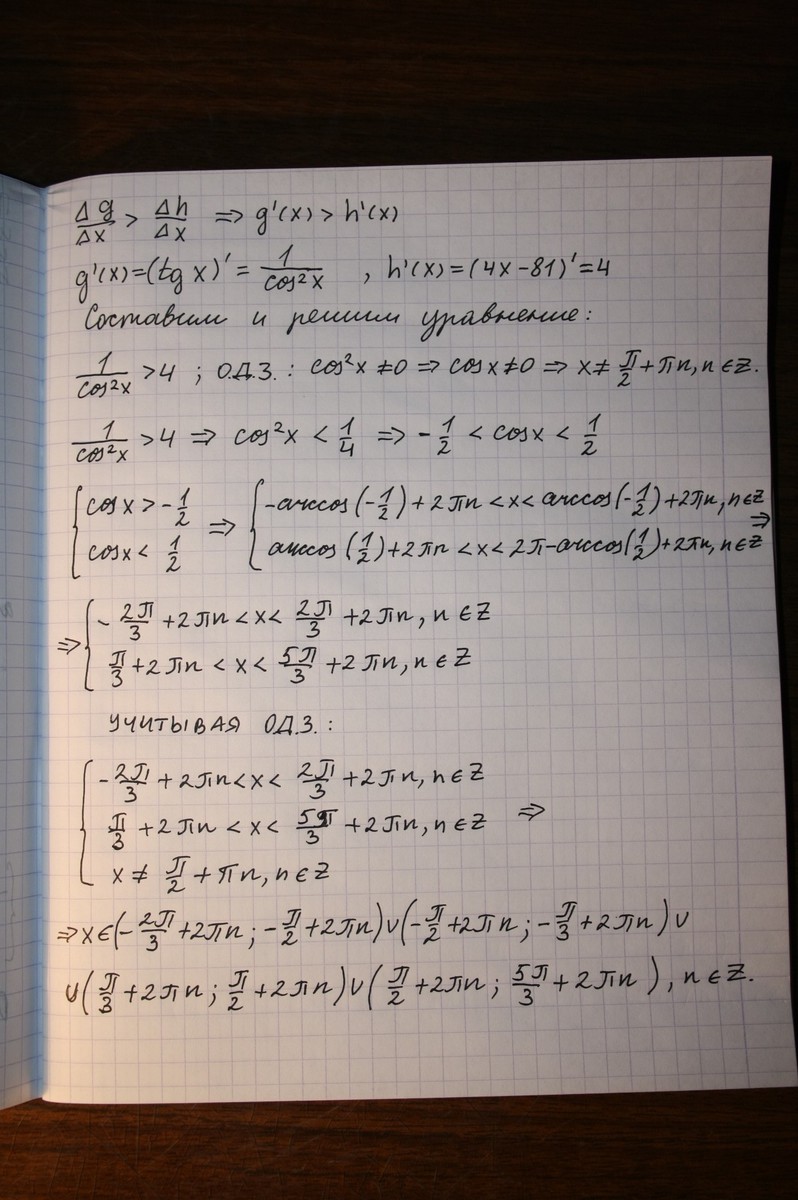 Δg/Δx > Δh/Δx ⇒ g'(x) > h'(x)
g'(x)=(tg x)' = 1/cos²x , h'(x)=(4x-81)'=4
Составим и решим уравнение:
1/cos²x >4 ; О.Д.З.: cos²x ≠0 ⇒ cosx≠0 ⇒ x≠ π/2+πn, n∈Z.
1/cos²x >4 ⇒ cos²x < 1/4 ⇒ -1/2 < cosx < 1/2
{ cosx > -1/2 ⇒ { -arccos(-1/2)+2πn <x< arccos(-1/2)+2πn, n∈Z
cosx < 1/2 arccos(1/2)+2πn <x< 2π-arccos(1/2)+2πn, n∈Z ⇒
⇒ { -2π/3 +2πn <x< 2π/3 +2πn, n∈Z
π/3 +2πn < x < 5π/3 +2πn, n∈Z
УЧИТЫВАЯ О.Д.З.:
{ -2π/3 +2πn<x< 2π/3 +2πn, n∈Z
π/3 +2πn <x< 5π/3 +2πn, n∈Z ⇒
x≠ π/2 +πn, n∈Z
⇒ x∈(-2π/3+2πn; -π/2+2πn)∪(-π/2+2πn; -π/3+2πn)∪
∪(π/3+2πn; π/2+2πn)∪(π/2+2πn; 5π/3+2πn), n∈Z.